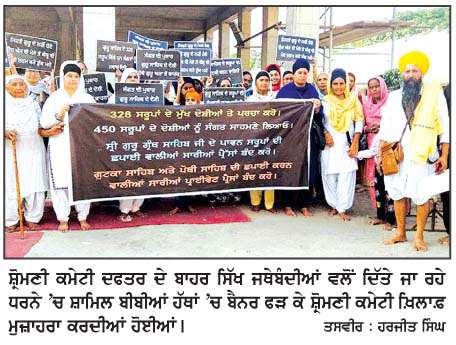 328 ਸਰੂਪਾਂ ਦੇ ਮੁੱਖ ਦੋਸ਼ੀਆਂ ਤੇ ਪਰਚਾ ਕਰੋ।
450 ਸਰੂਪਾਂ ਦੇ ਦੋਸ਼ੀਆਂ ਨੂੰ ਸੰਗਤ ਸਾਹਮਣੇ ਲਿਆਓ।
ਸ੍ਰੀ ਗੁਰੂ ਗ੍ਰੰਥ ਸਾਹਿਬ ਜੀ ਦੇ ਪਾਵਨ ਸਰੂਪਾਂ ਦੀ
ਛਪਾਈ ਵਾਲੀਆਂ ਸਾਰੀਆਂ ਪ੍ਰੈੱਸਾਂ ਬੰਦ ਕਰੋ।
ਗੁਟਕਾ ਸਾਹਿਬ ਅਤੇ ਪੋਥੀ ਸਾਹਿਬ ਦੀ ਛਪਾਈ ਕਰਨ
ਵਾਲੀਆਂ ਸਾਰੀਆਂ ਪ੍ਰਾਈਵੇਟ ਪ੍ਰੈਸਾਂ ਬੰਦ ਕਰੋ।
ਸ਼੍ਰੋਮਣੀ ਕਮੇਟੀ ਦਫਤਰ ਦੇ ਬਾਹਰ ਸਿੱਖ ਜਥੇਬੰਦੀਆਂ ਵਲੋਂ ਦਿੱਤੇ ਜਾ ਰਹੇ
ਧਰਨੇ ’ਚ ਸ਼ਾਮਿਲ ਬੀਬੀਆਂ ਹੱਥਾਂ ’ਚ ਬੈਨਰ ਫੜ ਕੇ ਸ਼੍ਰੋਮਣੀ ਕਮੇਟੀ ਖ਼ਿਲਾਫ਼
ਮੁਜ਼ਾਹਰਾ ਕਰਦੀਆਂ ਹੋਈਆਂ।
ਤਸਵੀਰ : ਹਰਜੀਤ ਸਿੰਘ